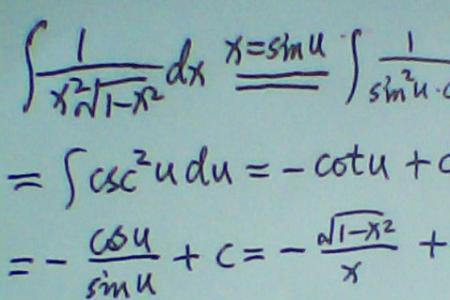 ∫ 1/(x²√(1-x²)) dx x=sinu ∫ 1/(sin²u·c
= ∫csc²u du = -cotu + c
= - cosu/sinu + c = - √(1-x²)/x +